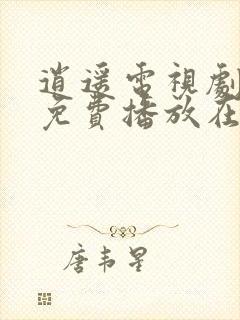 逍遥電視劇
免費播放在
唐韦星